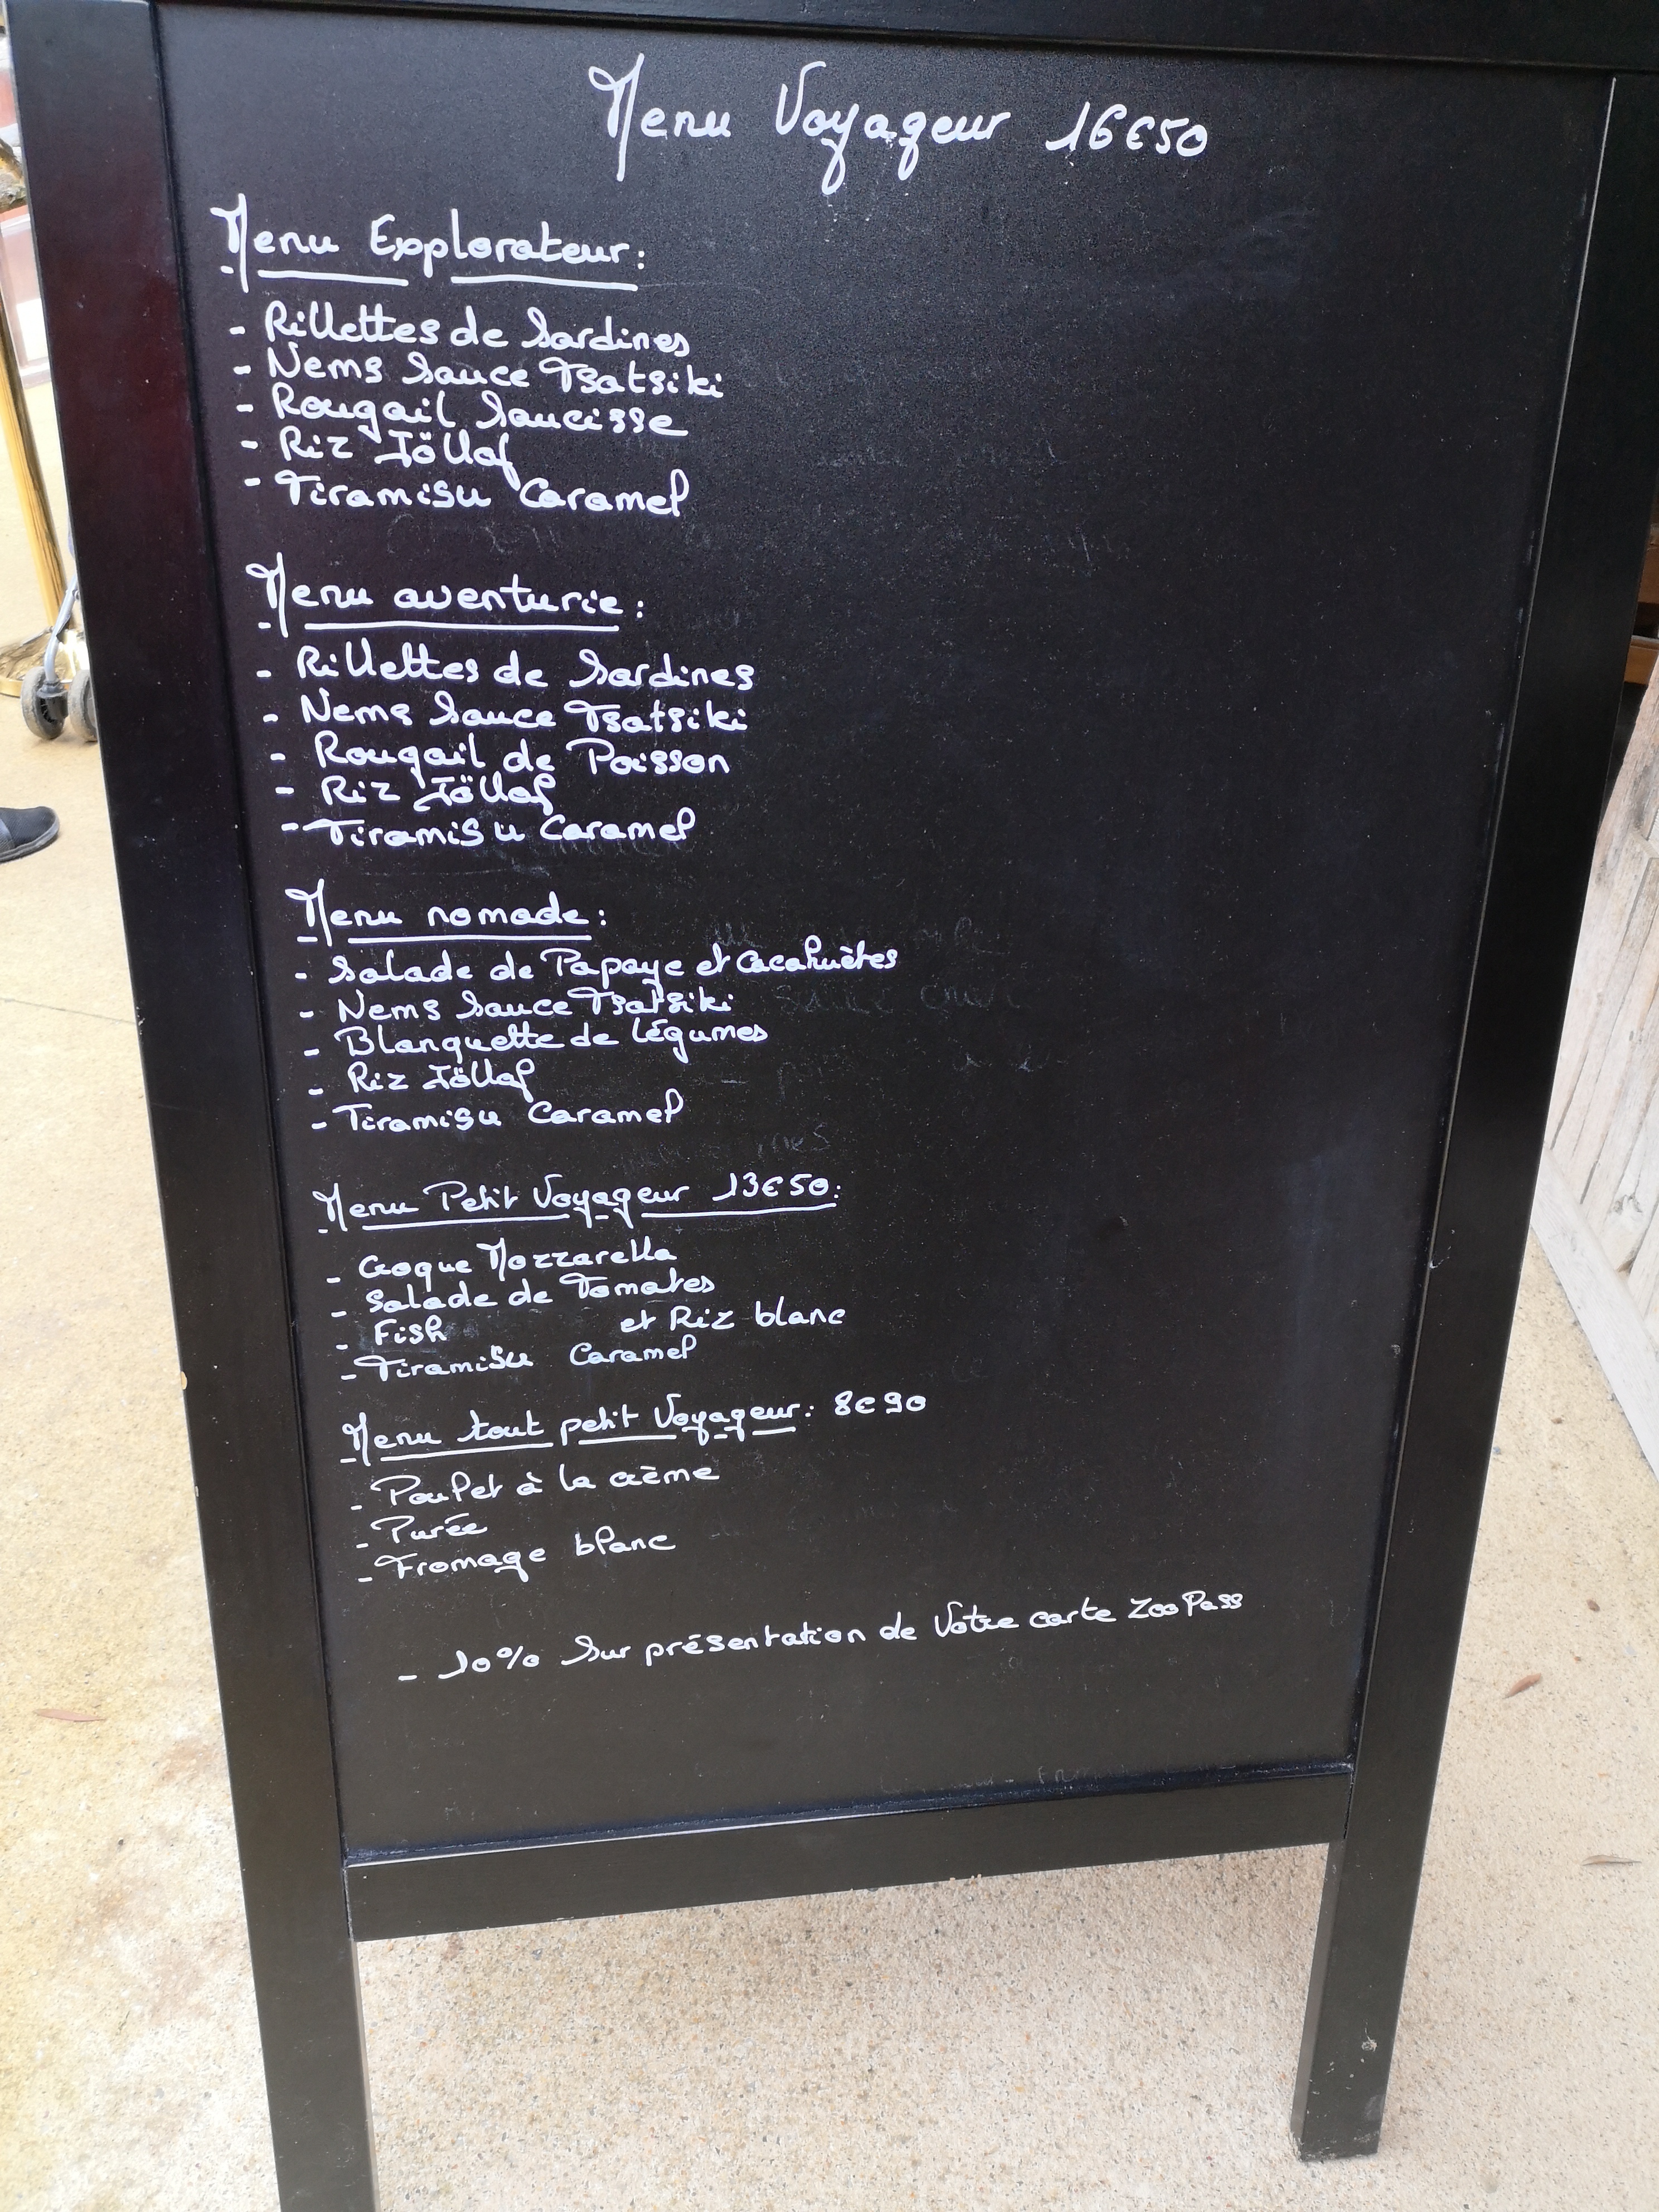 Menu Voyageur 16€50
Menu Explorateur:
- Rillettes de Sardines
- Nems Sauce Tsatsiki
- Rougail Saucisse
- Riz Jöllof
- Tiramisu Caramel
Menu aventurie:
- Rillettes de Sardines
- Nems Sauce Tsatsiki
- Rougail de Poisson
- Riz Jöllof
- Tiramisu Caramel
Menu nomade:
- Salade de Papaye et Cacahuètes
- Nems Sauce Tsatsiki
- Blanquette de légumes
- Riz Jöllof
- Tiramisu Caramel
Menu Petit Voyageur 13€50:
- Coque Mozzarella
- Salade de Tomates
- Fish et Riz blanc
- Tiramisu Caramel
Menu tout petit Voyageur: 8€90
- Poulet à la crème
- Purée
- Fromage blanc
- 10% Sur présentation de Votre carte ZooPass